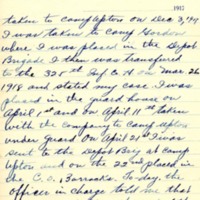 1917
taken to camp Upton on Dec 3, 1917
I was taken to camp Gordon
where I was placed in the Depot
Brigade I then was transfered
to the 325st Inf Co H on Mar 26
1918 and stated my case I was
placed in the guard house on
April 1st and on April 11th taken
with the company to Camp Upton
under Guard On April 21st I was
sent to the Depot Brig at Camp
Upton and on the 22nd placed in
the C.O. Barracks. To day, the
officer in charge told me that